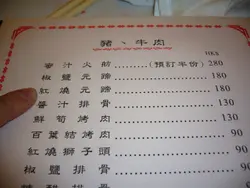 豬、牛肉
HK$
蜜汁火方……(預訂半份) 280
椒鹽元蹄………180
紅燒元蹄………180
醬汁排骨………130
鮮筍烤肉………130
百葉結烤肉………90
紅燒獅子頭………90
椒鹽排骨………90
排骨